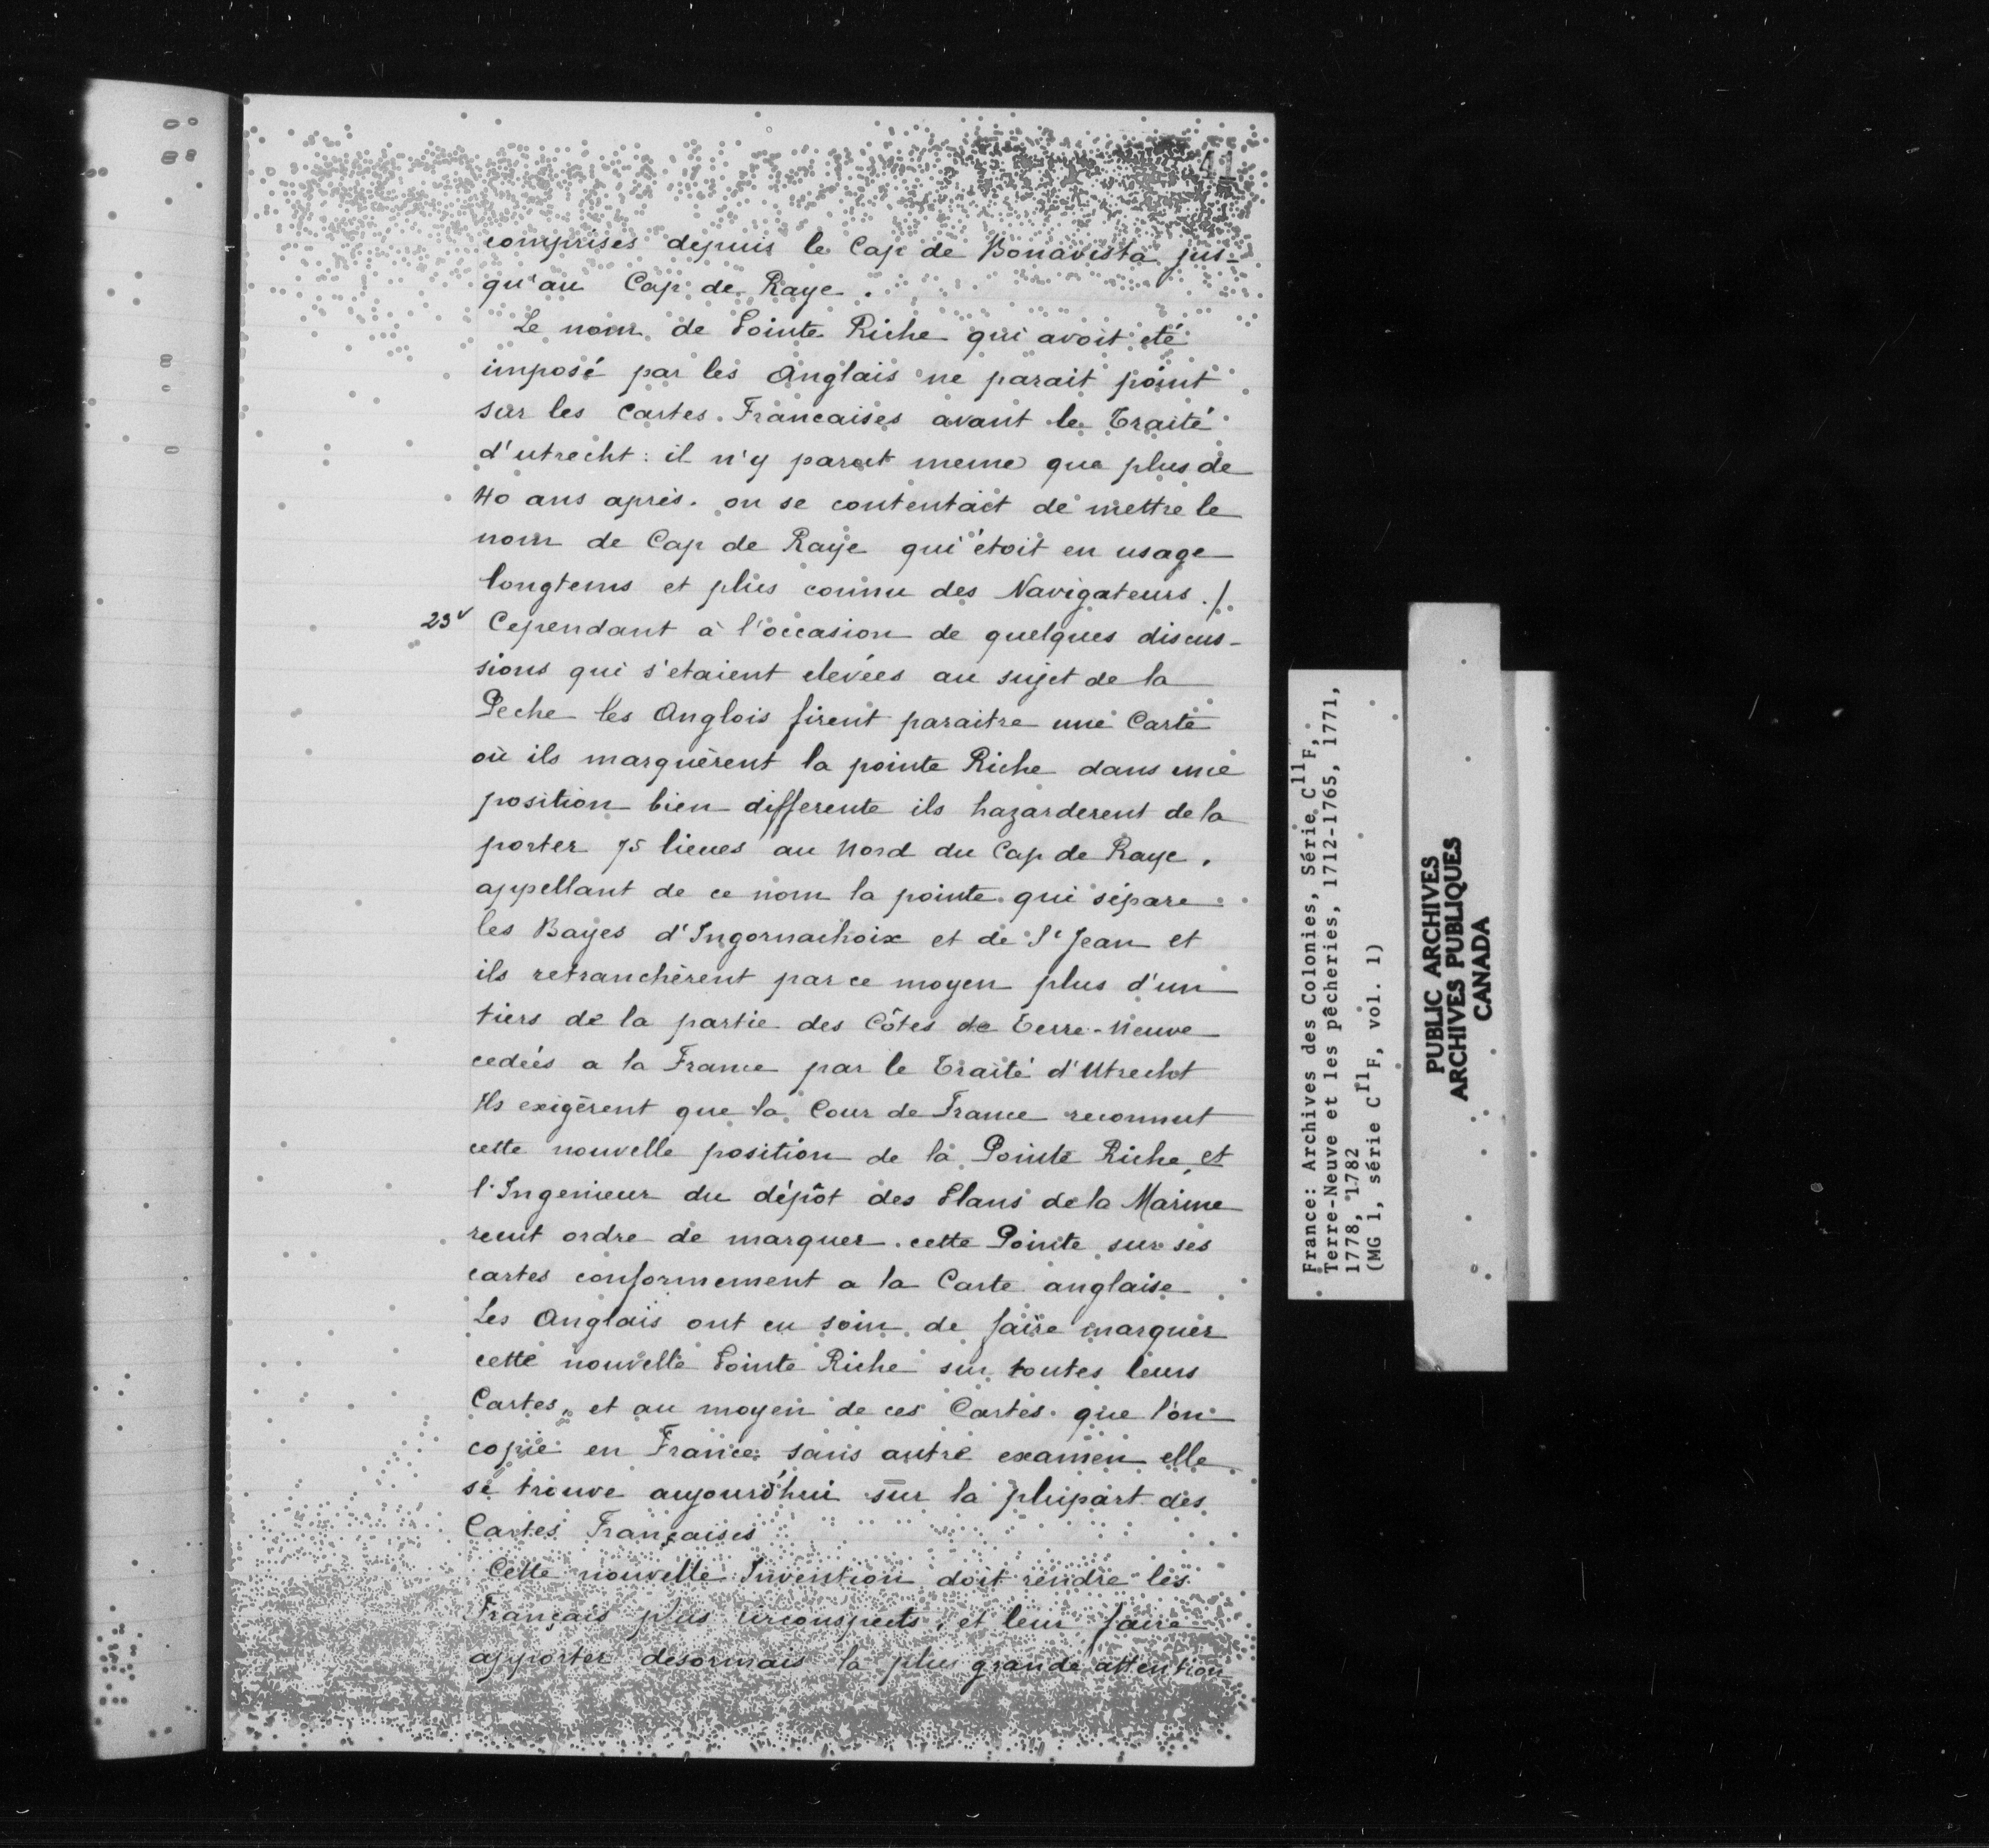 41
comprises depuis le Cap de Bonavista jus-
qu'au Cap de Raye.
Le nom de Pointe Riche qui avoit eté
imposé par les Anglais ne parait point
sur les cartes Francaises avant le Traité
d'utrecht: il n'y parait meme que plus de
40 ans après. on se contentait de mettre le
nom de Cap de Raye qui étoit en usage
longtems et plus connu des Navigateurs./.
23v Cependant à l'occasion de quelques discus-
sions qui s'etaient elevées au sujet de la
Peche les Anglois firent paraitre une Carte
où ils marquèrent la pointe Riche dans une
position bien differente ils hazarderent de la
porter 75 lieues au Nord du Cap de Raye.
appellant de ce nom la pointe qui sépare
les Bayes d'Ingornachoix et de St Jean et
ils retranchèrent par ce moyen plus d'un
tiers de la partie des Côtes de Terre-Neuve
cedées a la France par le Traité d'Utrecht
Ils exigèrent que la Cour de France reconnut
cette nouvelle position de la Pointe Riche, et
l'Ingenieur du dépôt des Plans de la Marine
recut ordre de marquer cette Pointe sur ses
cartes conformement a la Carte anglaise
Les Anglais ont eu soin de faire marquer
cette nouvelle Pointe Riche sur toutes leurs
Cartes, et au moyen de ces Cartes que l'on
copie en France sans autre examen elle
se trouve aujourd'hui sur la plupart des
Cartes Françaises
Cette nouvelle Invention doit rendre les
Français plus circonspects, et leur faire
apporter desormais la plus grande attention
France: Archives des Colonies, Série C11F,
Terre-Neuve et les pêcheries, 1712-1765, 1771,
1778, 1782
(MG 1, série C11F, vol. 1)
PUBLIC ARCHIVES
ARCHIVES PUBLIQUES
CANADA